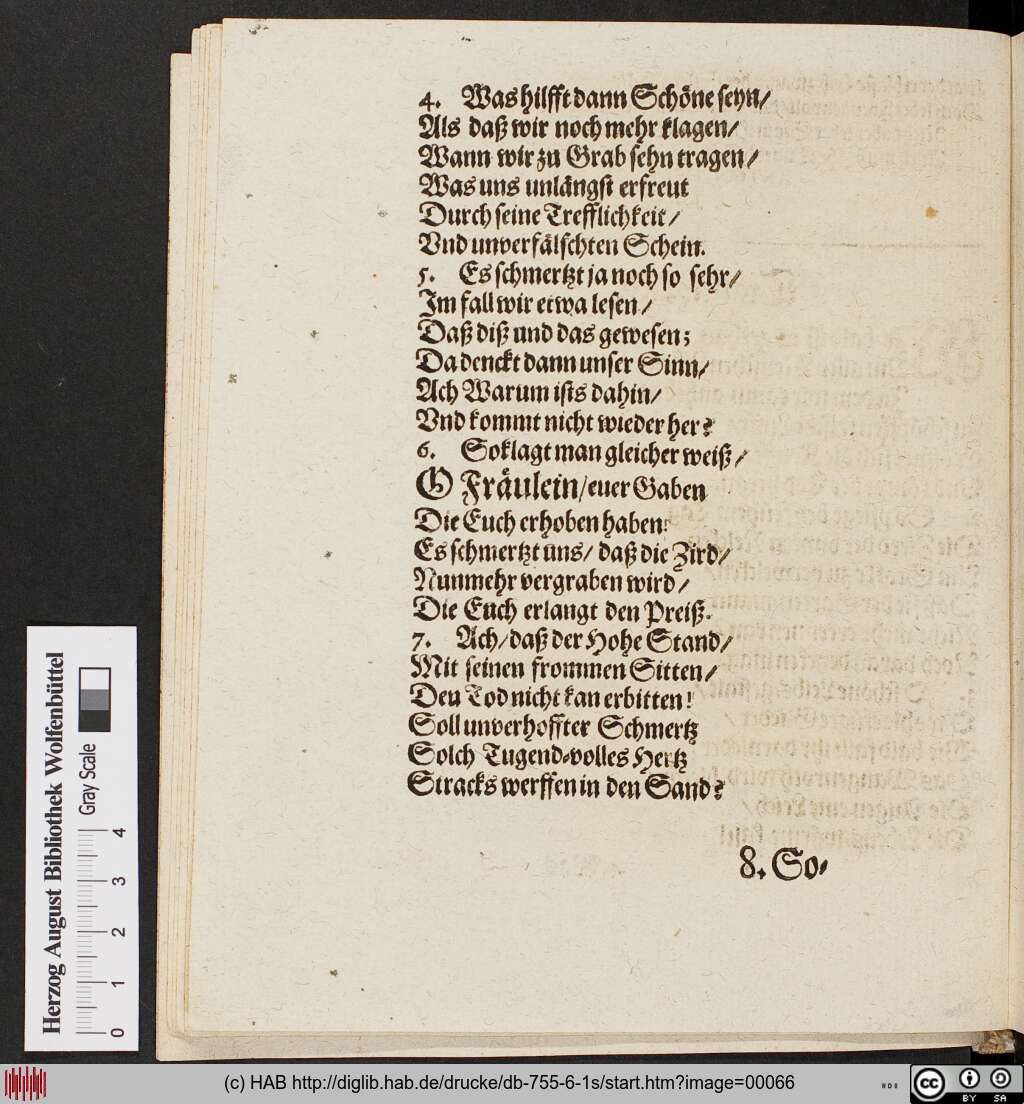 4. Was hilfft dann Schöne seyn/
Als daß wir noch mehr klagen/
Wann wir zu Grab sehn tragen/
Was uns unlängst erfreut
Durch seine Trefflichkeit/
Vnd unverfälschten Schein.
5. Es schmertzt ja noch so sehr/
Im fall wir etwa lesen/
Daß diß und das gewesen;
Da denckt dann unser Sinn/
Ach Warum ists dahin/
Vnd kommt nicht wieder her?
6. So klagt man gleicher weiß/
O Fräulein/ euer Gaben
Die Euch erhoben haben!
Es schmertzt uns/ daß die Zird/
Nunmehr vergraben wird/
Die Euch erlangt den Preiß.
7. Ach/ daß der Hohe Stand/
Mit seinen frommen Sitten/
Den Tod nicht kan erbitten!
Soll unverhoffter Schmertz
Solch Tugend-volles Hertz
Stracks werffen in den Sand?
8. So-
Herzog August Bibliothek Wolfenbüttel
Gray Scale
0 1 2 3 4
(c) HAB http://diglib.hab.de/drucke/db-755-6-1s/start.htm?image=00066
cc BY SA